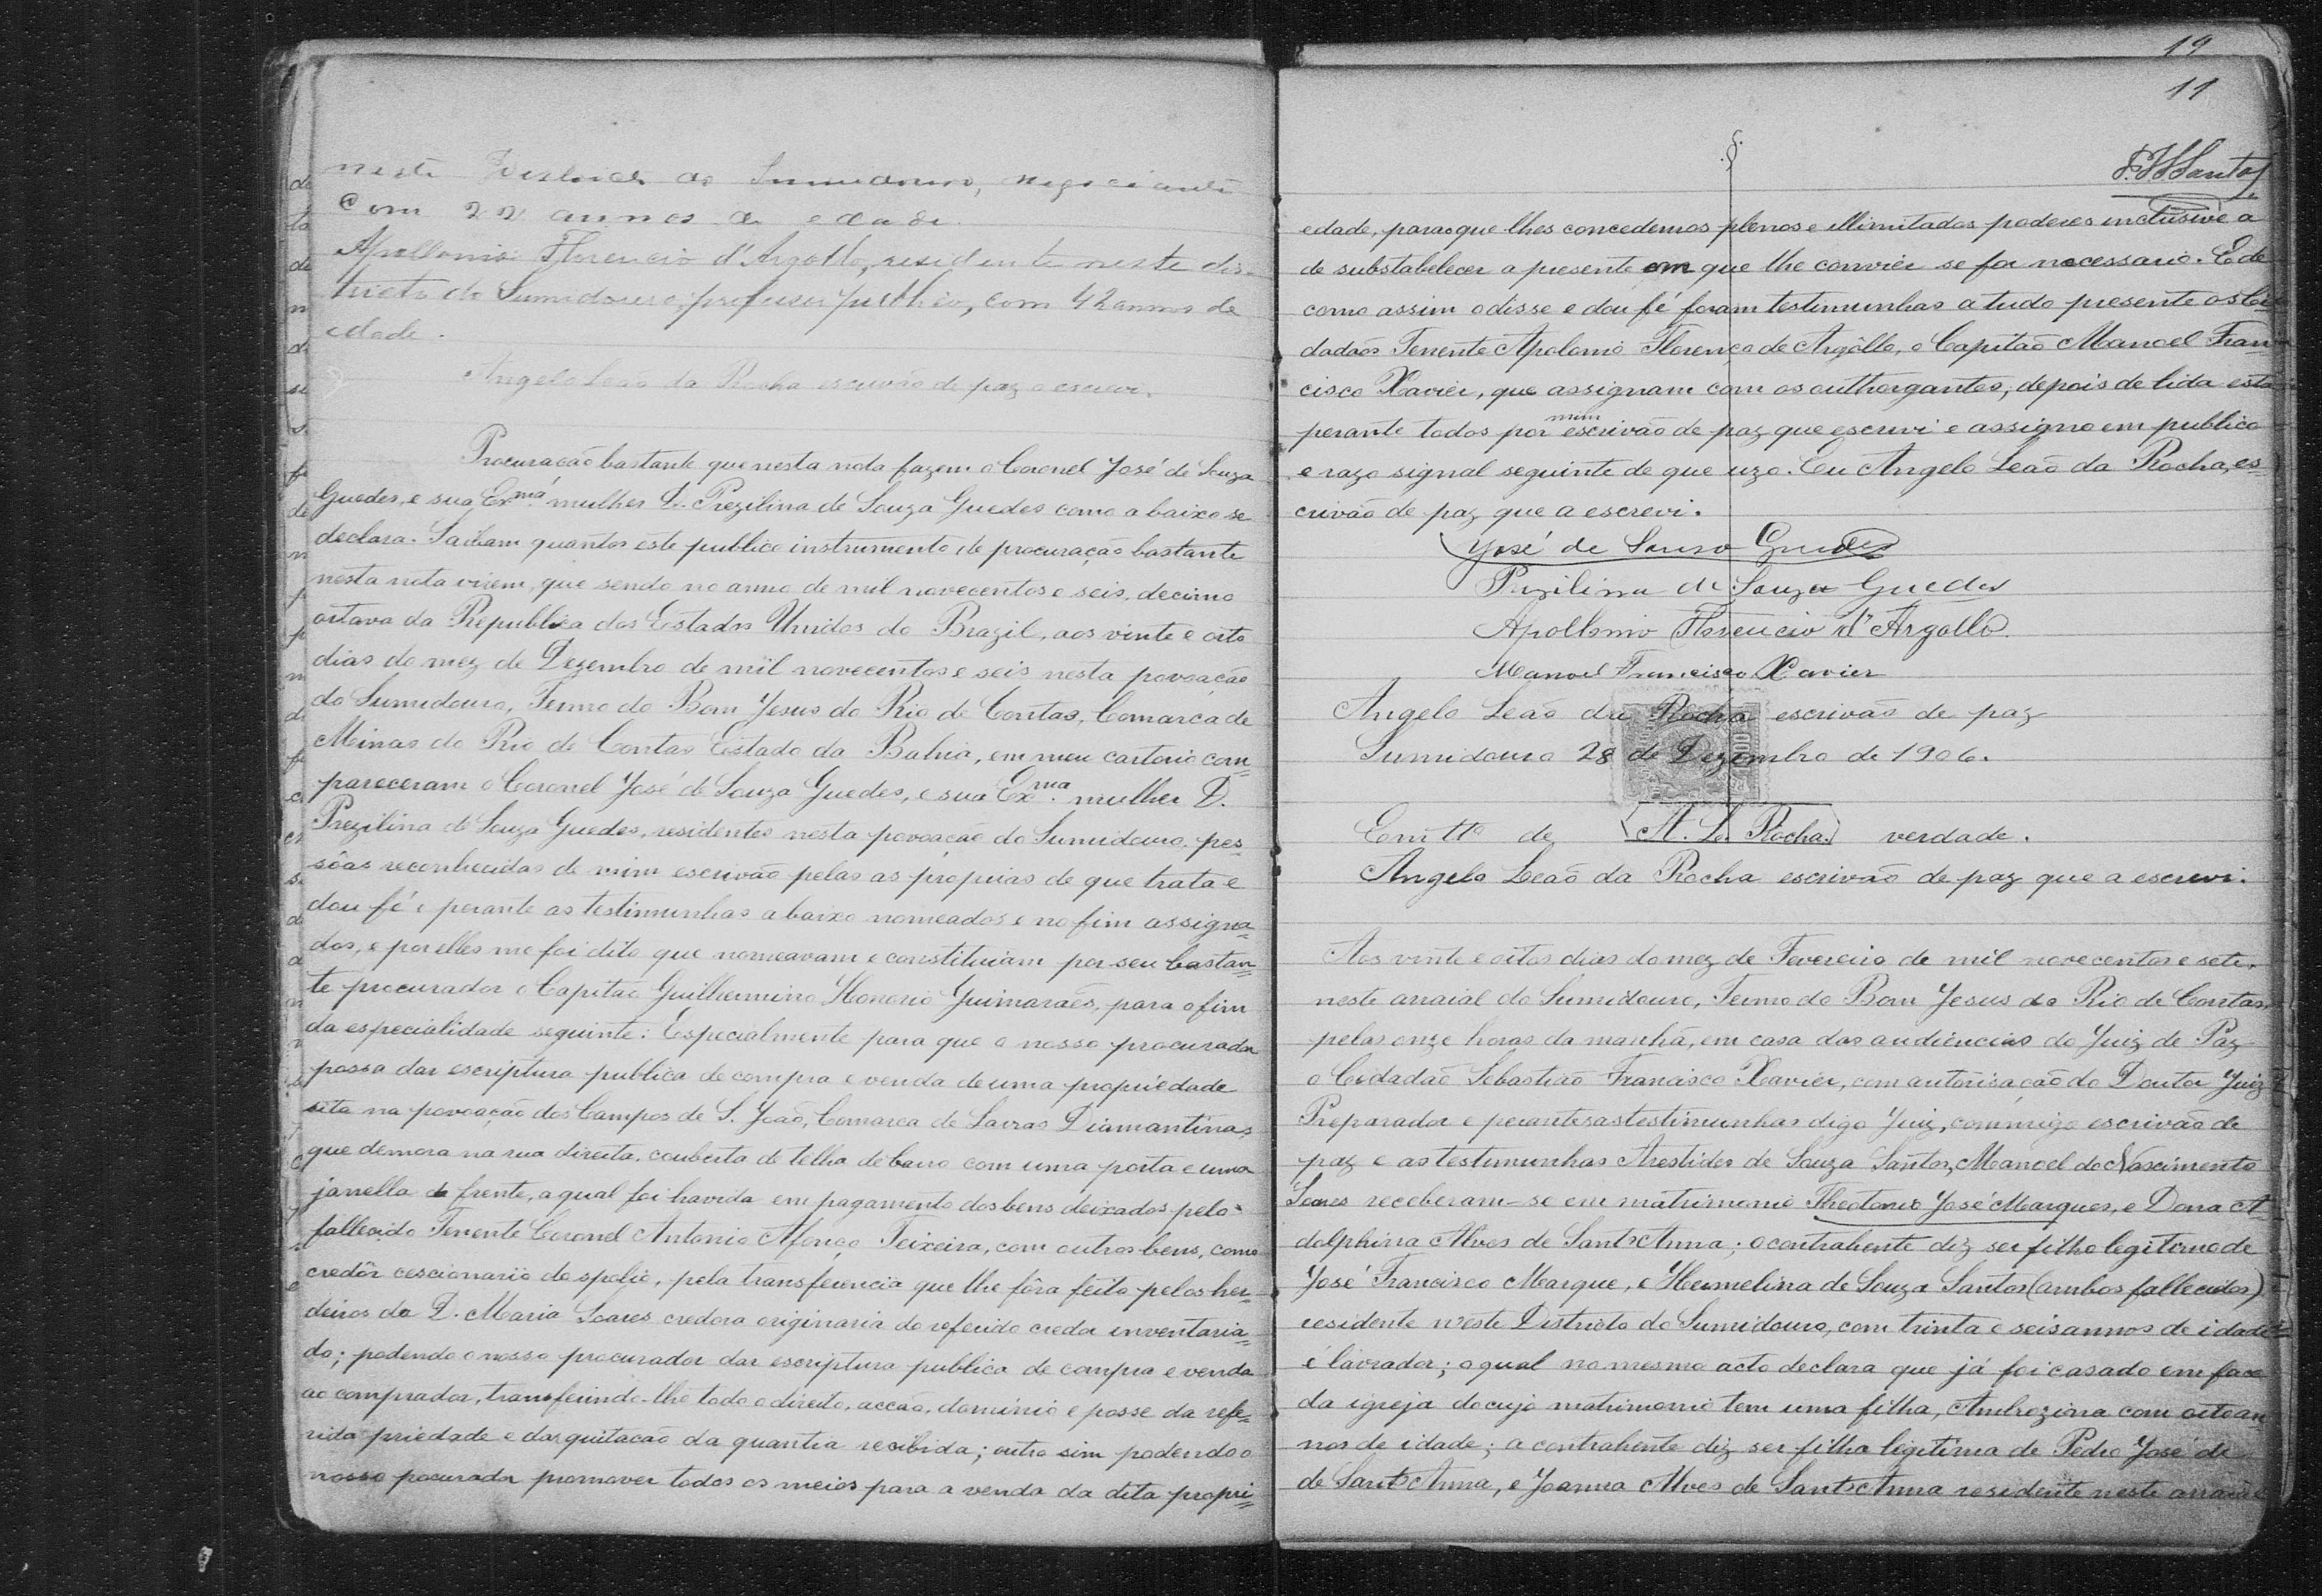 neste Districto do Sumidouro, negociante
com 22 annos de edade.
Apollonio Florencio d'Argollo, residente neste dis-
tricto do Sumidouro, professor publico, com 42 annos de
edade.
Angelo Leão da Rocha escrivão de paz o escrevi.
Procuração bastante que nesta nota fazem o Coronel José de Souza
Guedes, e sua Ex.ma mulher D. Prezilina de Souza Guedes como abaixo se
declara. Saibam quantos este publico instrumento de procuração bastante
nesta nota virem, que sendo no anno de mil novecentos e seis, decimo
oitava da Republica dos Estados Unidos do Brazil, aos vinte e oito
dias do mez de Dezembro de mil novecentos e seis nesta povoação
do Sumidouro, Termo do Bom Jesus do Rio de Contas, Comarca de
Minas do Rio de Contas Estado da Bahia, em meu cartorio com=
pareceram o Coronel José de Souza Guedes, e sua Ex.ma mulher D.
Prezilina de Souza Guedes, residentes nesta povoação do Sumidouro, pes=
sôas reconhecidas de mim escrivão pelas as propias de que trata e
dou fé e perante as testimunhas abaixo nomeados e no fim assigna=
dos, e por elles me foi dito que nomeavam e constituiam por seu bastan=
te procurador o Capitão Guilhermino Honorio Guimaraẽs, para o fim
da especialidade seguinte: Especialmente para que o nosso procurador
possa dar escriptura publica de compra e venda de uma propriedade
sita na povoação dos Campos de S. João, Comarca de Lavras Diamantinas,
que demora na rua direita, couberta de telha de barro com uma porta e uma
janella de frente, a qual foi havida em pagamento dos bens deixados pelo
fallecido Tenente Coronel Antonio Afonço Teixeira, com outros bens, como
credôr cescionario do spolio, pela transferencia que lhe fôra feito pelos her=
deiros da D. Maria Soares credora originaria do referido credor inventaria=
do; podendo o nosso procurador dar escriptura publica de compra e venda
ao comprador, transferindo-lhe todo o direito, acção, dominio e posse da refe=
rida priedade e dar quitacão da quantia recibida; outro sim podendo o
nosso pocurador promover todos os meios para a venda da dita propri=
19
11
.§.
Santos
edade, para o que lhes concedemos plenos e illimitados poderes inclusive a
de substabelecer a presente em que lhe convier se for necessario. E de
como assim o disse e dou fé foram testimunhas a tudo presente os Ci
dadaõs Tenente Apolonio Florenco de Argôllo, o Capitão Manoel Fran=
cisco Xavier, que assignam com os outhorgantes, depois de lida esta
perante todos por mim escrivão de paz que escrevi e assigno em publico
e razo signal seguinte de que uzo. Eu Angelo Leão da Rocha, es=
crivão de paz que a escrevi.
José de Souza Guedes
Prezilina de Souza Guedes
Apollonio Florencio d'Argollo.
Manoel Francisco Xavier
Angelo Leão da Rocha escrivão de paz
Sumidouro 28 de Dezembro de 1906.
Em tt.º de A. L. Rocha. verdade.
Angelo Leão da Rocha escrivão de paz que a escrevi.
Aos vinte e oitos dias do mez de Fevereiro de mil novecentos e sete,
neste arraial do Sumidouro, Termo do Bom Jesus do Rio de Contas,
pelas onze horas da manhã, em casa das audiencias do Juiz de Paz
o Cidadão Sebastião Francisco Xavier, com autorisação do Doutor Juiz
Preparador e perantes as testimunhas digo Juiz, commigo escrivão de
paz e as testimunhas Arestides de Souza Santos, Manoel do Nascimento
Soares receberam-se em matrimonio Theotonio José Marques, e Dona A-
dolphina Alves de Sant'Anna; o contrahente diz ser filho legitimo de
José Francisco Marque, e Hermelina de Souza Santos (ambos fallecidos)
residente neste Districto do Sumidouro, com trinta e seis annos de idade
é lavrador; o qual no mesmo acto declara que já foi casado em face
da igreja do cujo matrimonio tem uma filha, Ambrozina com oito an
nos de idade; a contrahente diz ser filha legitima de Pedro José de
de Sant'Anna, e Joanna Alves de Sant'Anna residente neste arraial